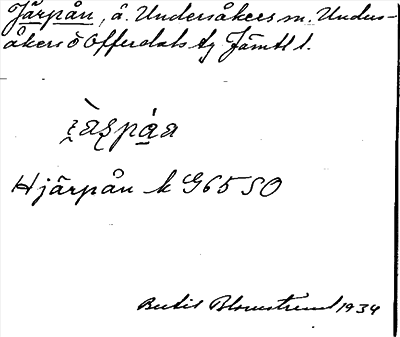 Järpån, å. Undersåkers sn. Unders-
åkers o Offerdals tg Jämtl l.
Hjärpån k G65 SO
Bertil Blomstrand 1934